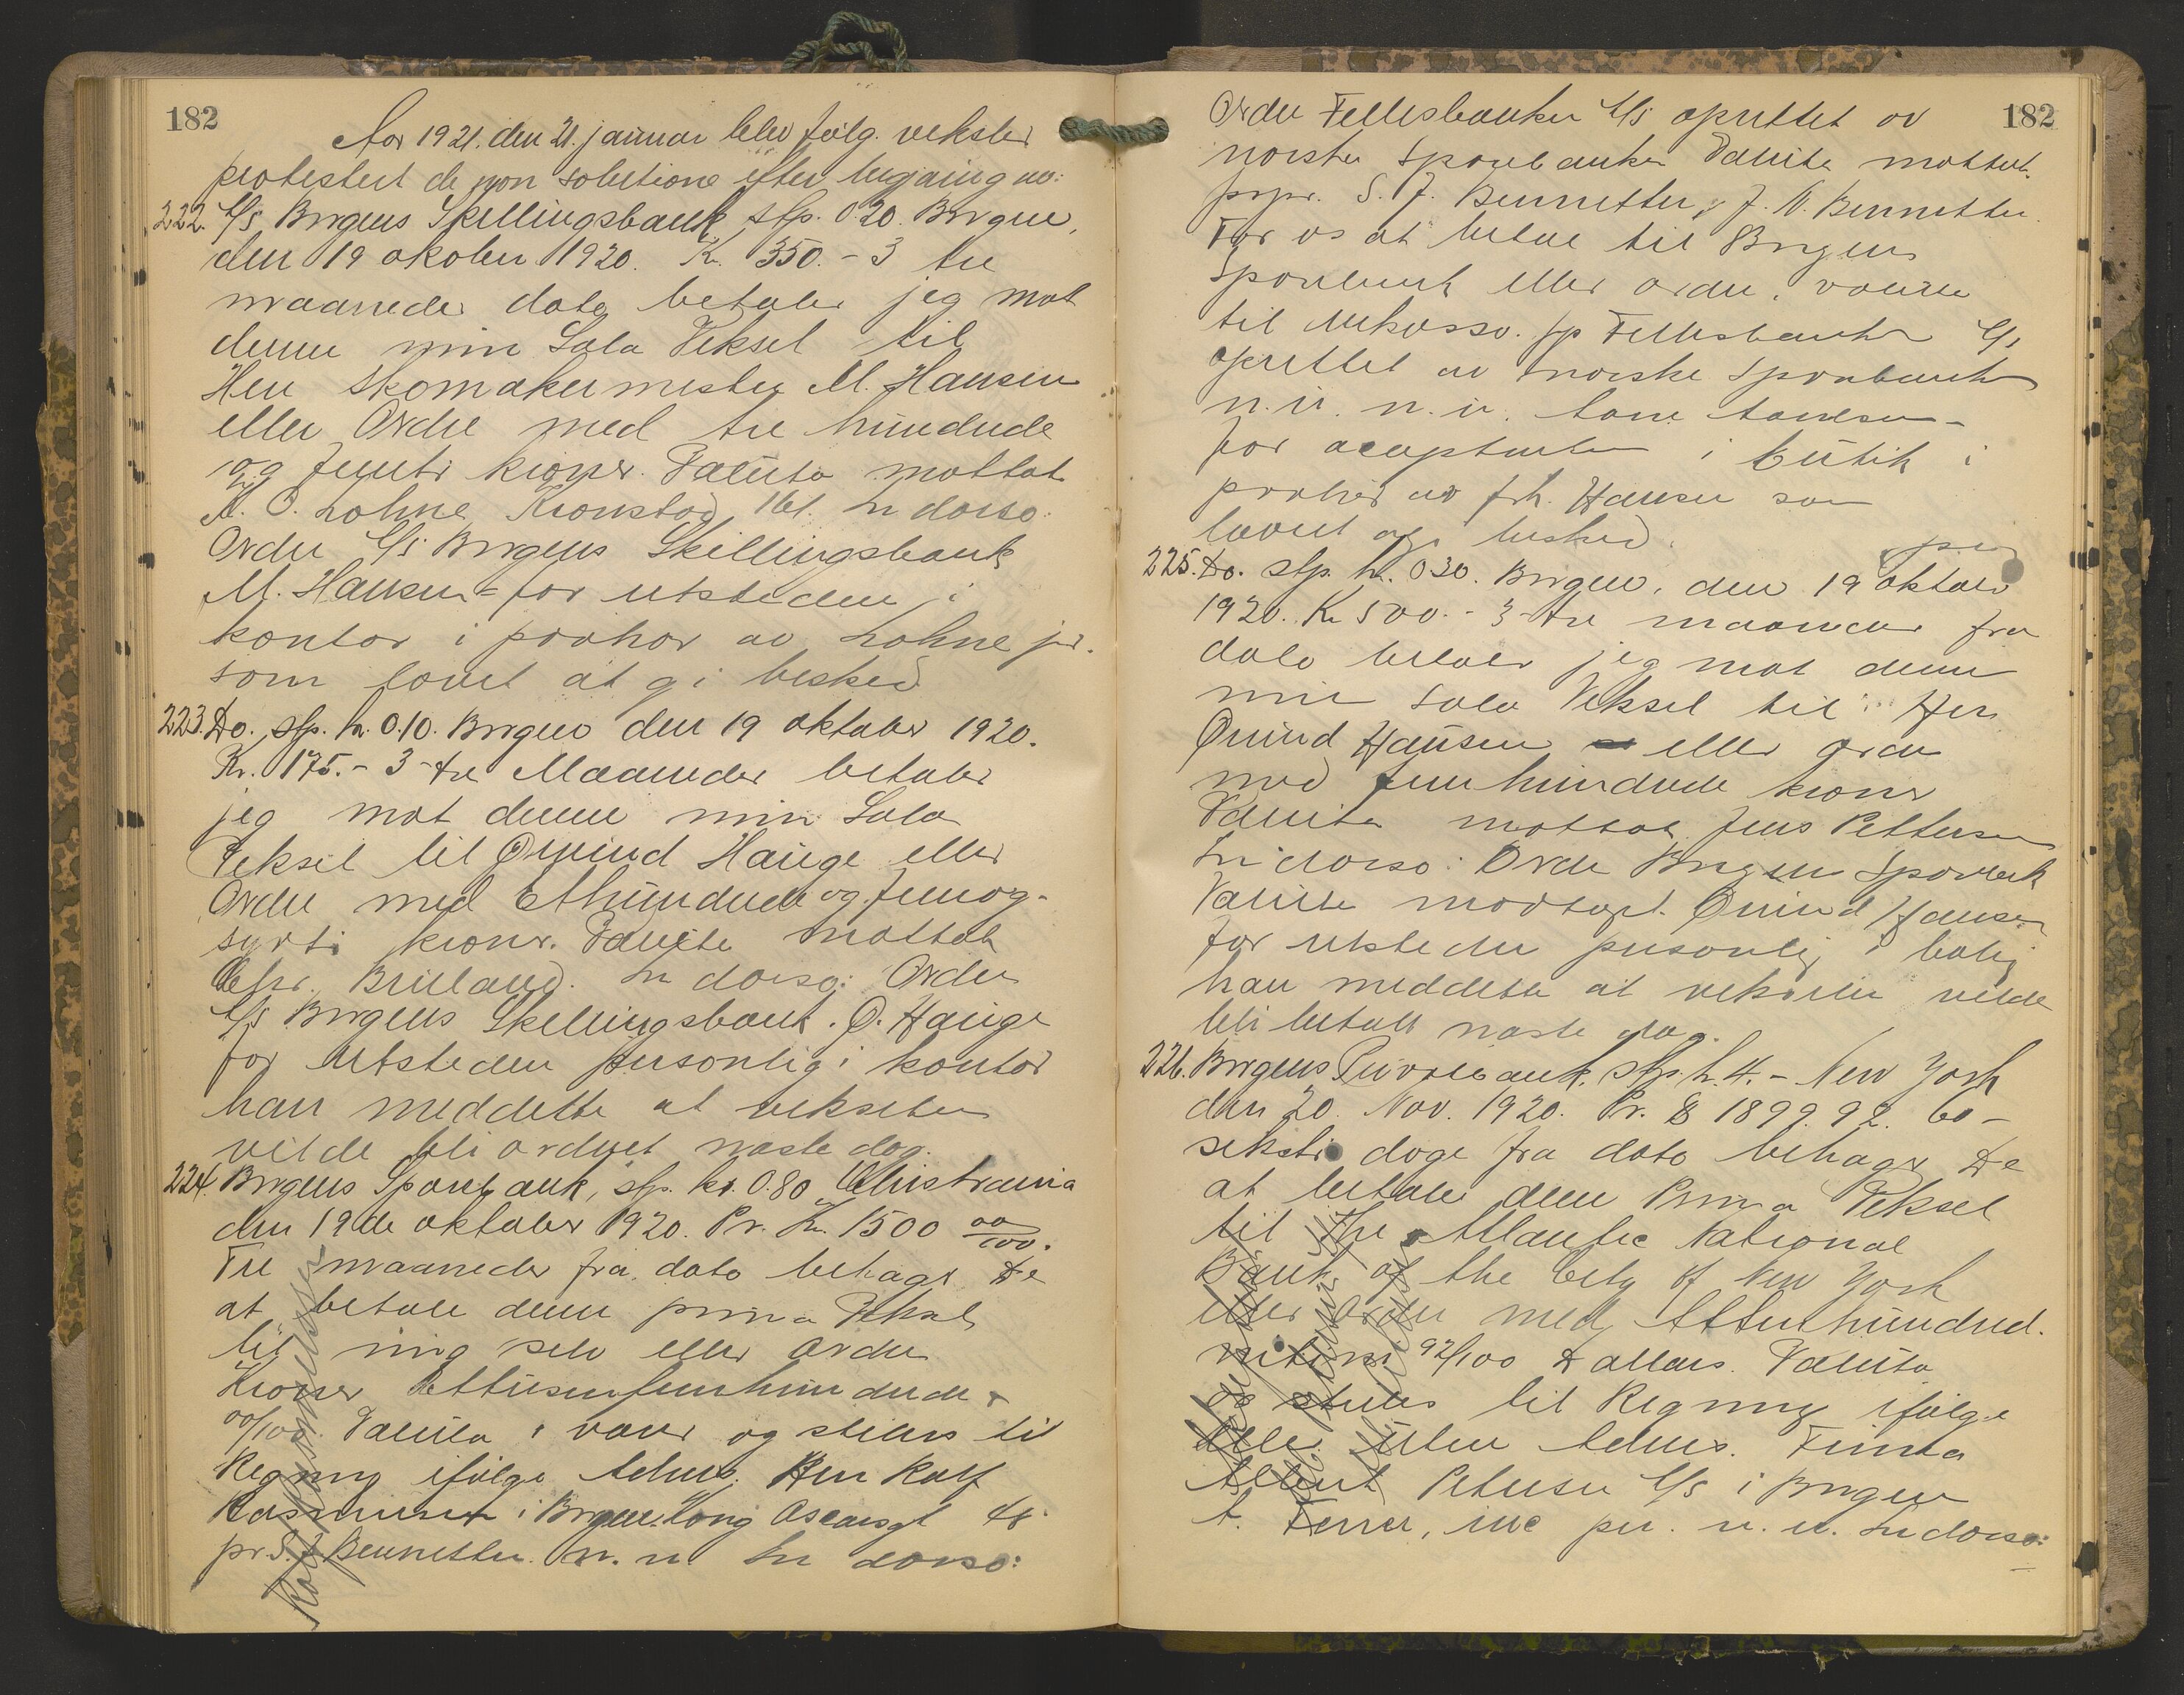 182
Aar 1921. den 21. januar blev følg. veksler
protestert de non solutione efter begjæring av:
222. A/S Bergens Skillingsbank, stp. 0.20. Bergen,
den 19 okober 1920. Kr. 350.- 3 tre
maaneder dato betaler jeg mot
denne min Sola Veksel til
Herr Skomakermester M. Hansen
eller Ordre med tre hundrede
og femti kroner. Valuta mottat.
A. O. Lohne Kronstad 161. In dorso:
Ordre A/S Bergens Skillingsbank
M. Hansen - for utstederen i
kontor i paahør av Lohne jr.
som lovet at gi besked
223. Do. stp. kr. 0.10. Bergen den 19 oktober 1920.
Kr. 175.- 3 - tre Maaneder betaler
jeg mot denne min Sola
Veksel til Øivind Hauge eller
Ordre med Ethundrede og femog-
sytti kroner. Valuta mottat
Chr. Brüland. In dorso: Ordre
A/S Bergens Skillingsbank. Ø. Hauge
for utstederen personlig i kontor
han meddelte at vekselen
vilde bli ordnet næste dag.
224. Bergens Sparebank, stp. kr. 0.80 Christiania
den 19de oktober 1920. Pr. Kr. 1500 00/100.
Tre maaneder fra dato behager De
at betale denne prima Veksel
til mig selv eller ordre
Kroner Ettusenfemhundrede
00/100. Valuta i varer og stilles til
Regning ifølge Advis. Herr Rolf
Rasmussen i Bergen. Kong Oscarsgt 48
pr S. J. Bennetter. n. n. In dorso:
Rolf Rasmussen
182
Ordre Fellesbanken A/S oprettet av
norske Sparebanker Valuta mottat.
prpr. S. J. Bennetter, J. N. Bennetter.
For os at betale til Bergens
Sparebank eller ordre, valuta
til inkasso. pp Fellesbanken A/S
oprettet av norske Sparebanker
n. n. n. n.
for acceptanten i butik i
paahør av frk. Hansen som
lovet at gi besked.
225. Do. stp. kr. 0.30. Bergen, den 19 oktober
1920. Kr 500.- 3 - tre maaneder fra
dato betaler jeg mot denne
min Sola Veksel til Herr
Øivind Hansen eller ordre
med femhundrede kroner
Valuta mottat. Jens Pettersen
In dorso: Ordre Bergens Sparebank
Valuta modtaget. Øivind Hansen
for utstederen personlig i bolig
han meddelte at vekselen vilde
bli betalt næste dag.
226. Bergens Privatbank, stp. kr. 4. - New York
den 20. Nov. 1920. Pr. $ 1899.92. 60 -
seksti dage fra dato behager De
at betale denne Prima Veksel
til The Atlantic National
Bank of the City of New York
eller ordre med Attenhundred.
nitini 92/100 Dollars. Valuta
og stilles til Regning ifølge
eller uten Advis. Firma
Albert Petersen A/S i Bergen
A. Ferrer, inc per. n. n. In dorso: